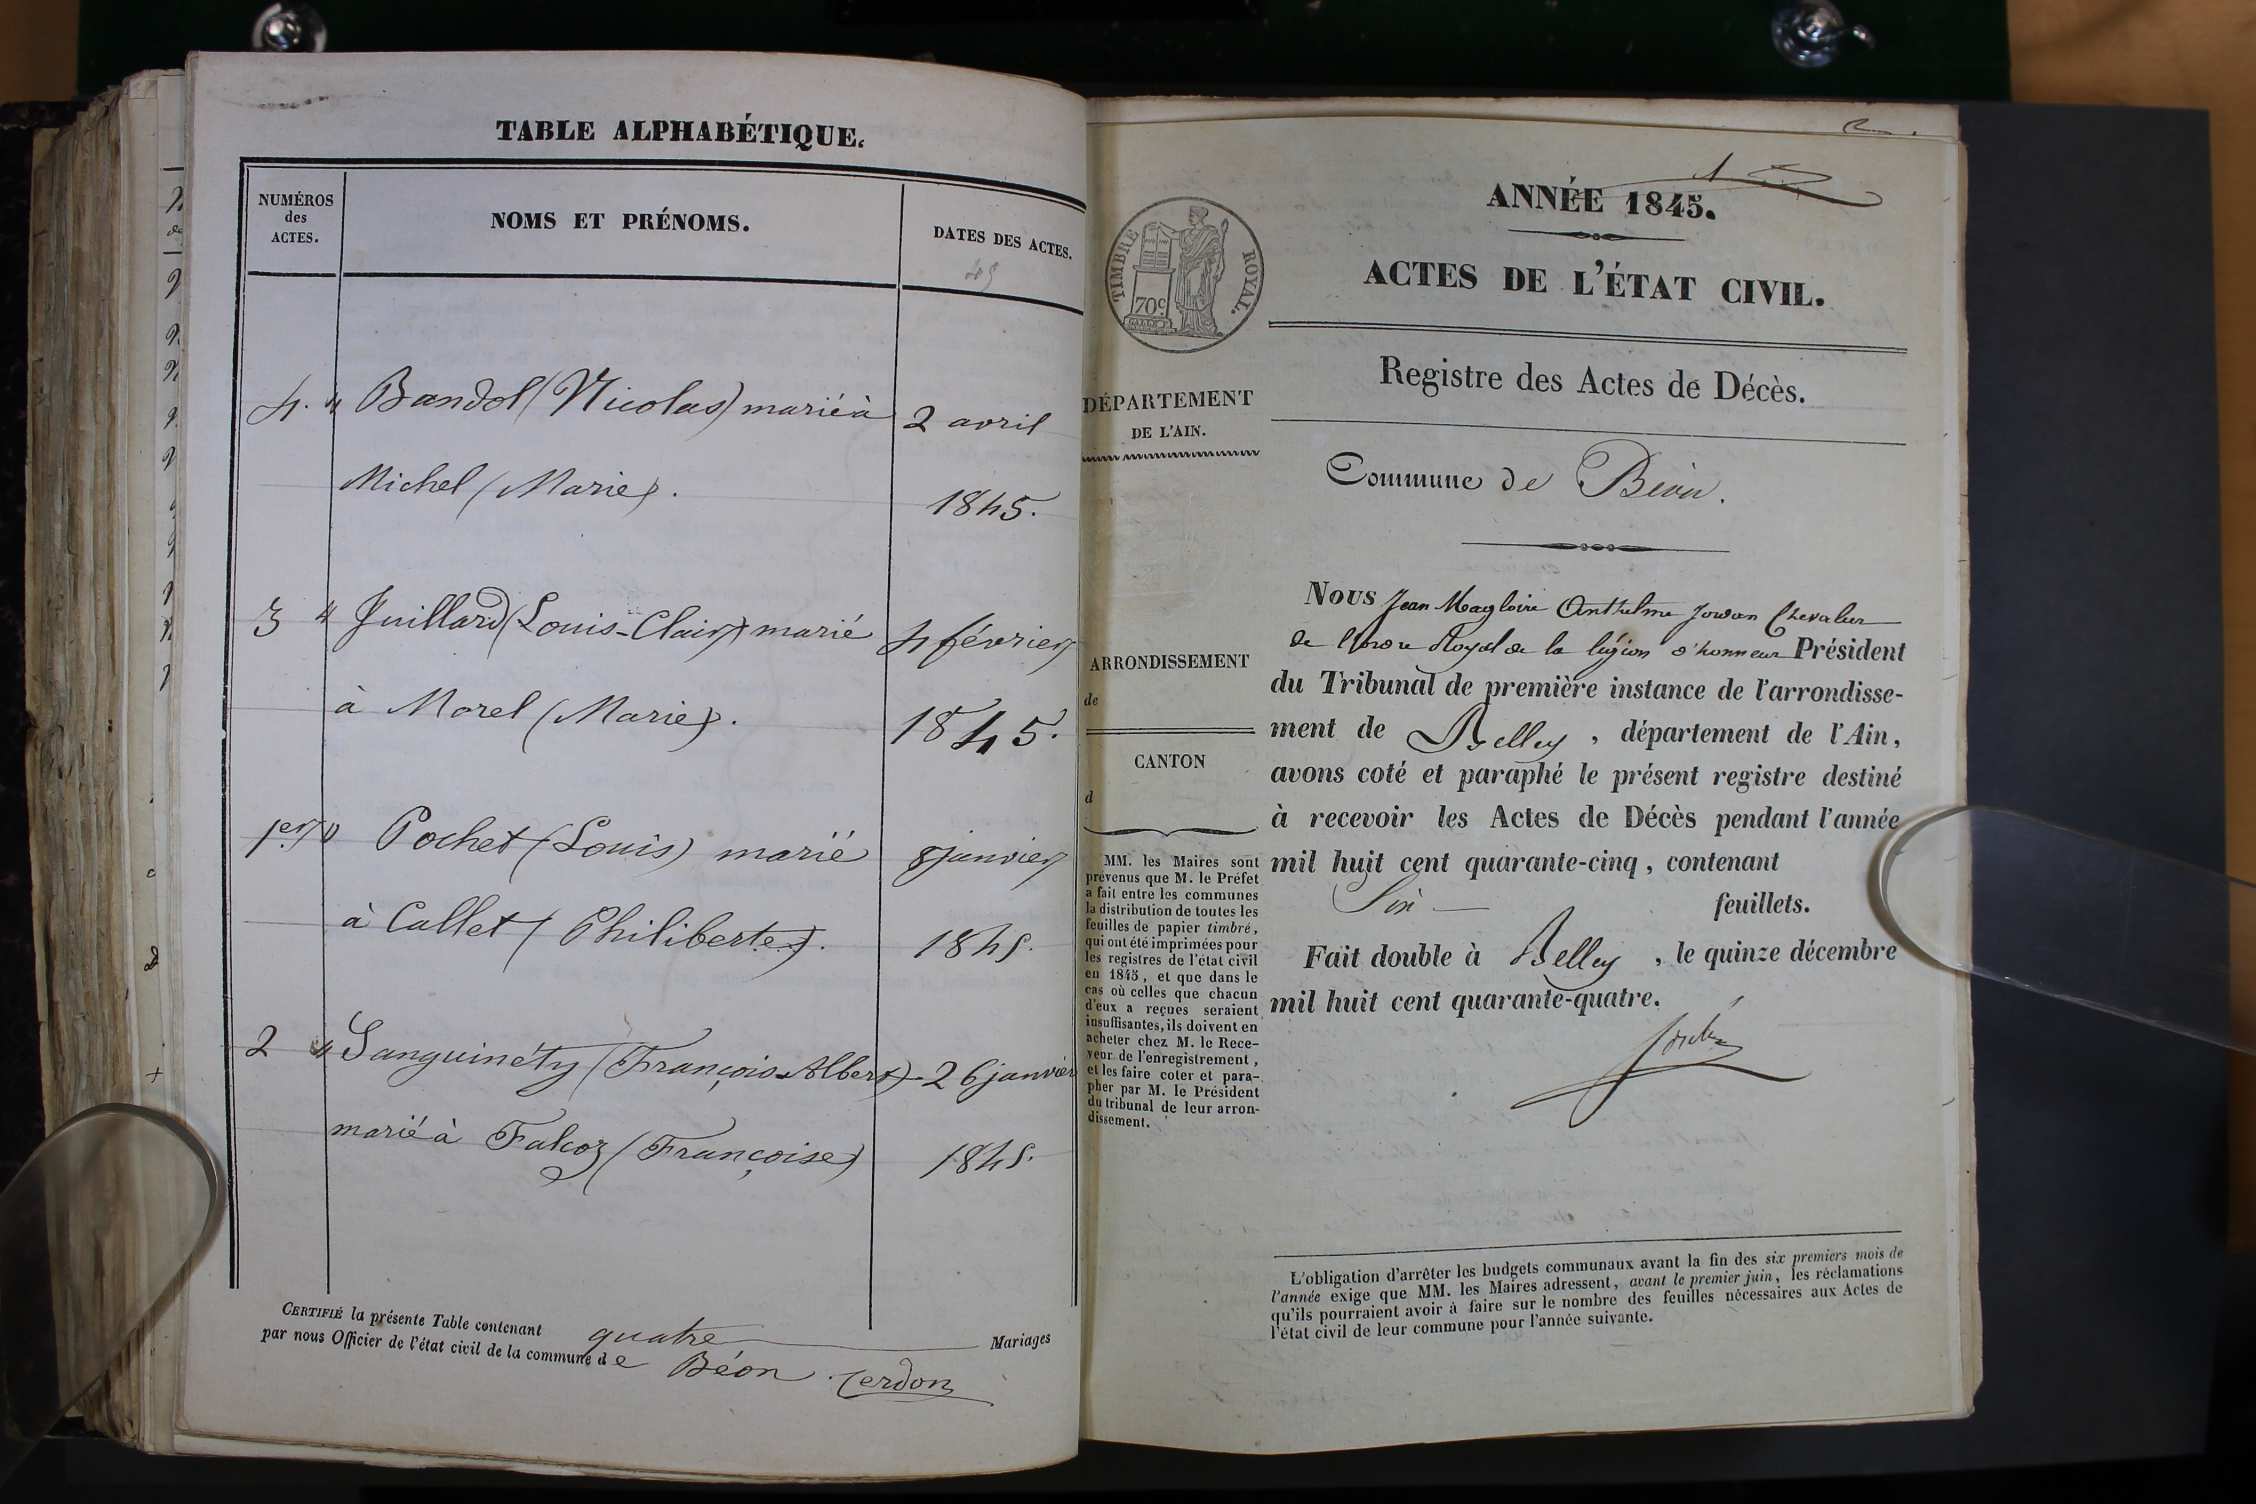 TABLE ALPHABÉTIQUE.
NUMÉROS
des
ACTES.
NOMS ET PRÉNOMS.
DATES DES ACTES.
4. " Bandol (Nicolas) marié à 2 avril
Michel (Marie). 1845.
3 " Juillard (Louis-Clair) marié 4 février
à Morel (Marie). 1845.
1er " Pochet (Louis) marié 8 janvier
à Callet (Philiberte). 1845.
2 " Sanguinéty (François-Albert) 26 janvier
marié à Falcoz (Françoise) 1845.
CERTIFIÉ la présente Table contenant quatre Mariages
par nous Officier de l'état civil de la commune de Béon. Cerdon
1
ANNÉE 1845.
ACTES DE L'ÉTAT CIVIL.
Registre des Actes de Décès.
Commune de Béon.
TIMBRE ROYAL.
70c.
DÉPARTEMENT
DE L'AIN.
ARRONDISSEMENT
de
CANTON
d
MM. les Maires sont
prévenus que M. le Préfet
a fait entre les communes
la distribution de toutes les
feuilles de papier timbré,
qui ont été imprimées pour
les registres de l'état civil
en 1845, et que dans le
cas où celles que chacun
d'eux a reçues seraient
insuffisantes, ils doivent en
acheter chez M. le Rece-
veur de l'enregistrement,
et les faire coter et para-
pher par M. le Président
du tribunal de leur arron-
dissement.
Nous Jean Magloire Anthelme Chevalier
de l'ordre Royal de la légion d'honneur Président
du Tribunal de première instance de l'arrondisse-
ment de Belley, département de l'Ain,
avons coté et paraphé le présent registre destiné
à recevoir les Actes de Décès pendant l'année
mil huit cent quarante-cinq, contenant
Six feuillets.
Fait double à Belley, le quinze décembre
mil huit cent quarante-quatre.
L'obligation d'arrêter les budgets communaux avant la fin des six premiers mois de
l'année exige que MM. les Maires adressent, avant le premier juin, les réclamations
qu'ils pourraient avoir à faire sur le nombre des feuilles nécessaires aux Actes de
l'état civil de leur commune pour l'année suivante.